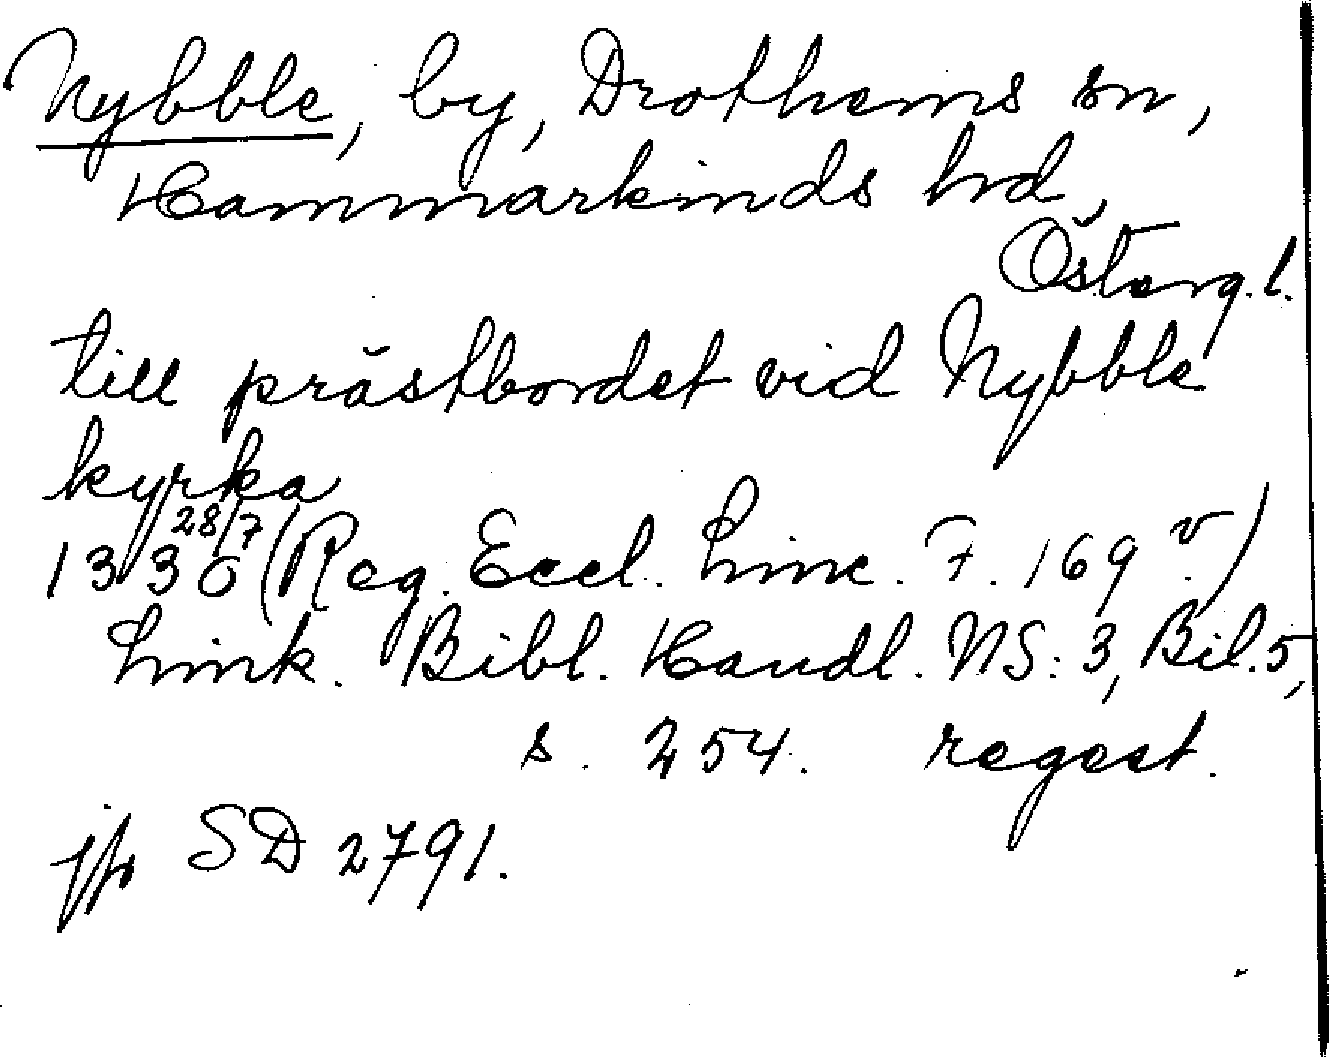 Nybble, by, Drothems sn,
Hammarkinds hd,
Österg.l.
till prästbordet vid Nybble
kyrka
1330 28/7 (Reg. Eccl. Linc. F. 169 v.)
Link. Bibl. Handl. NS: 3, Bil. 5,
s. 254. regest.
jfr SD 2791.